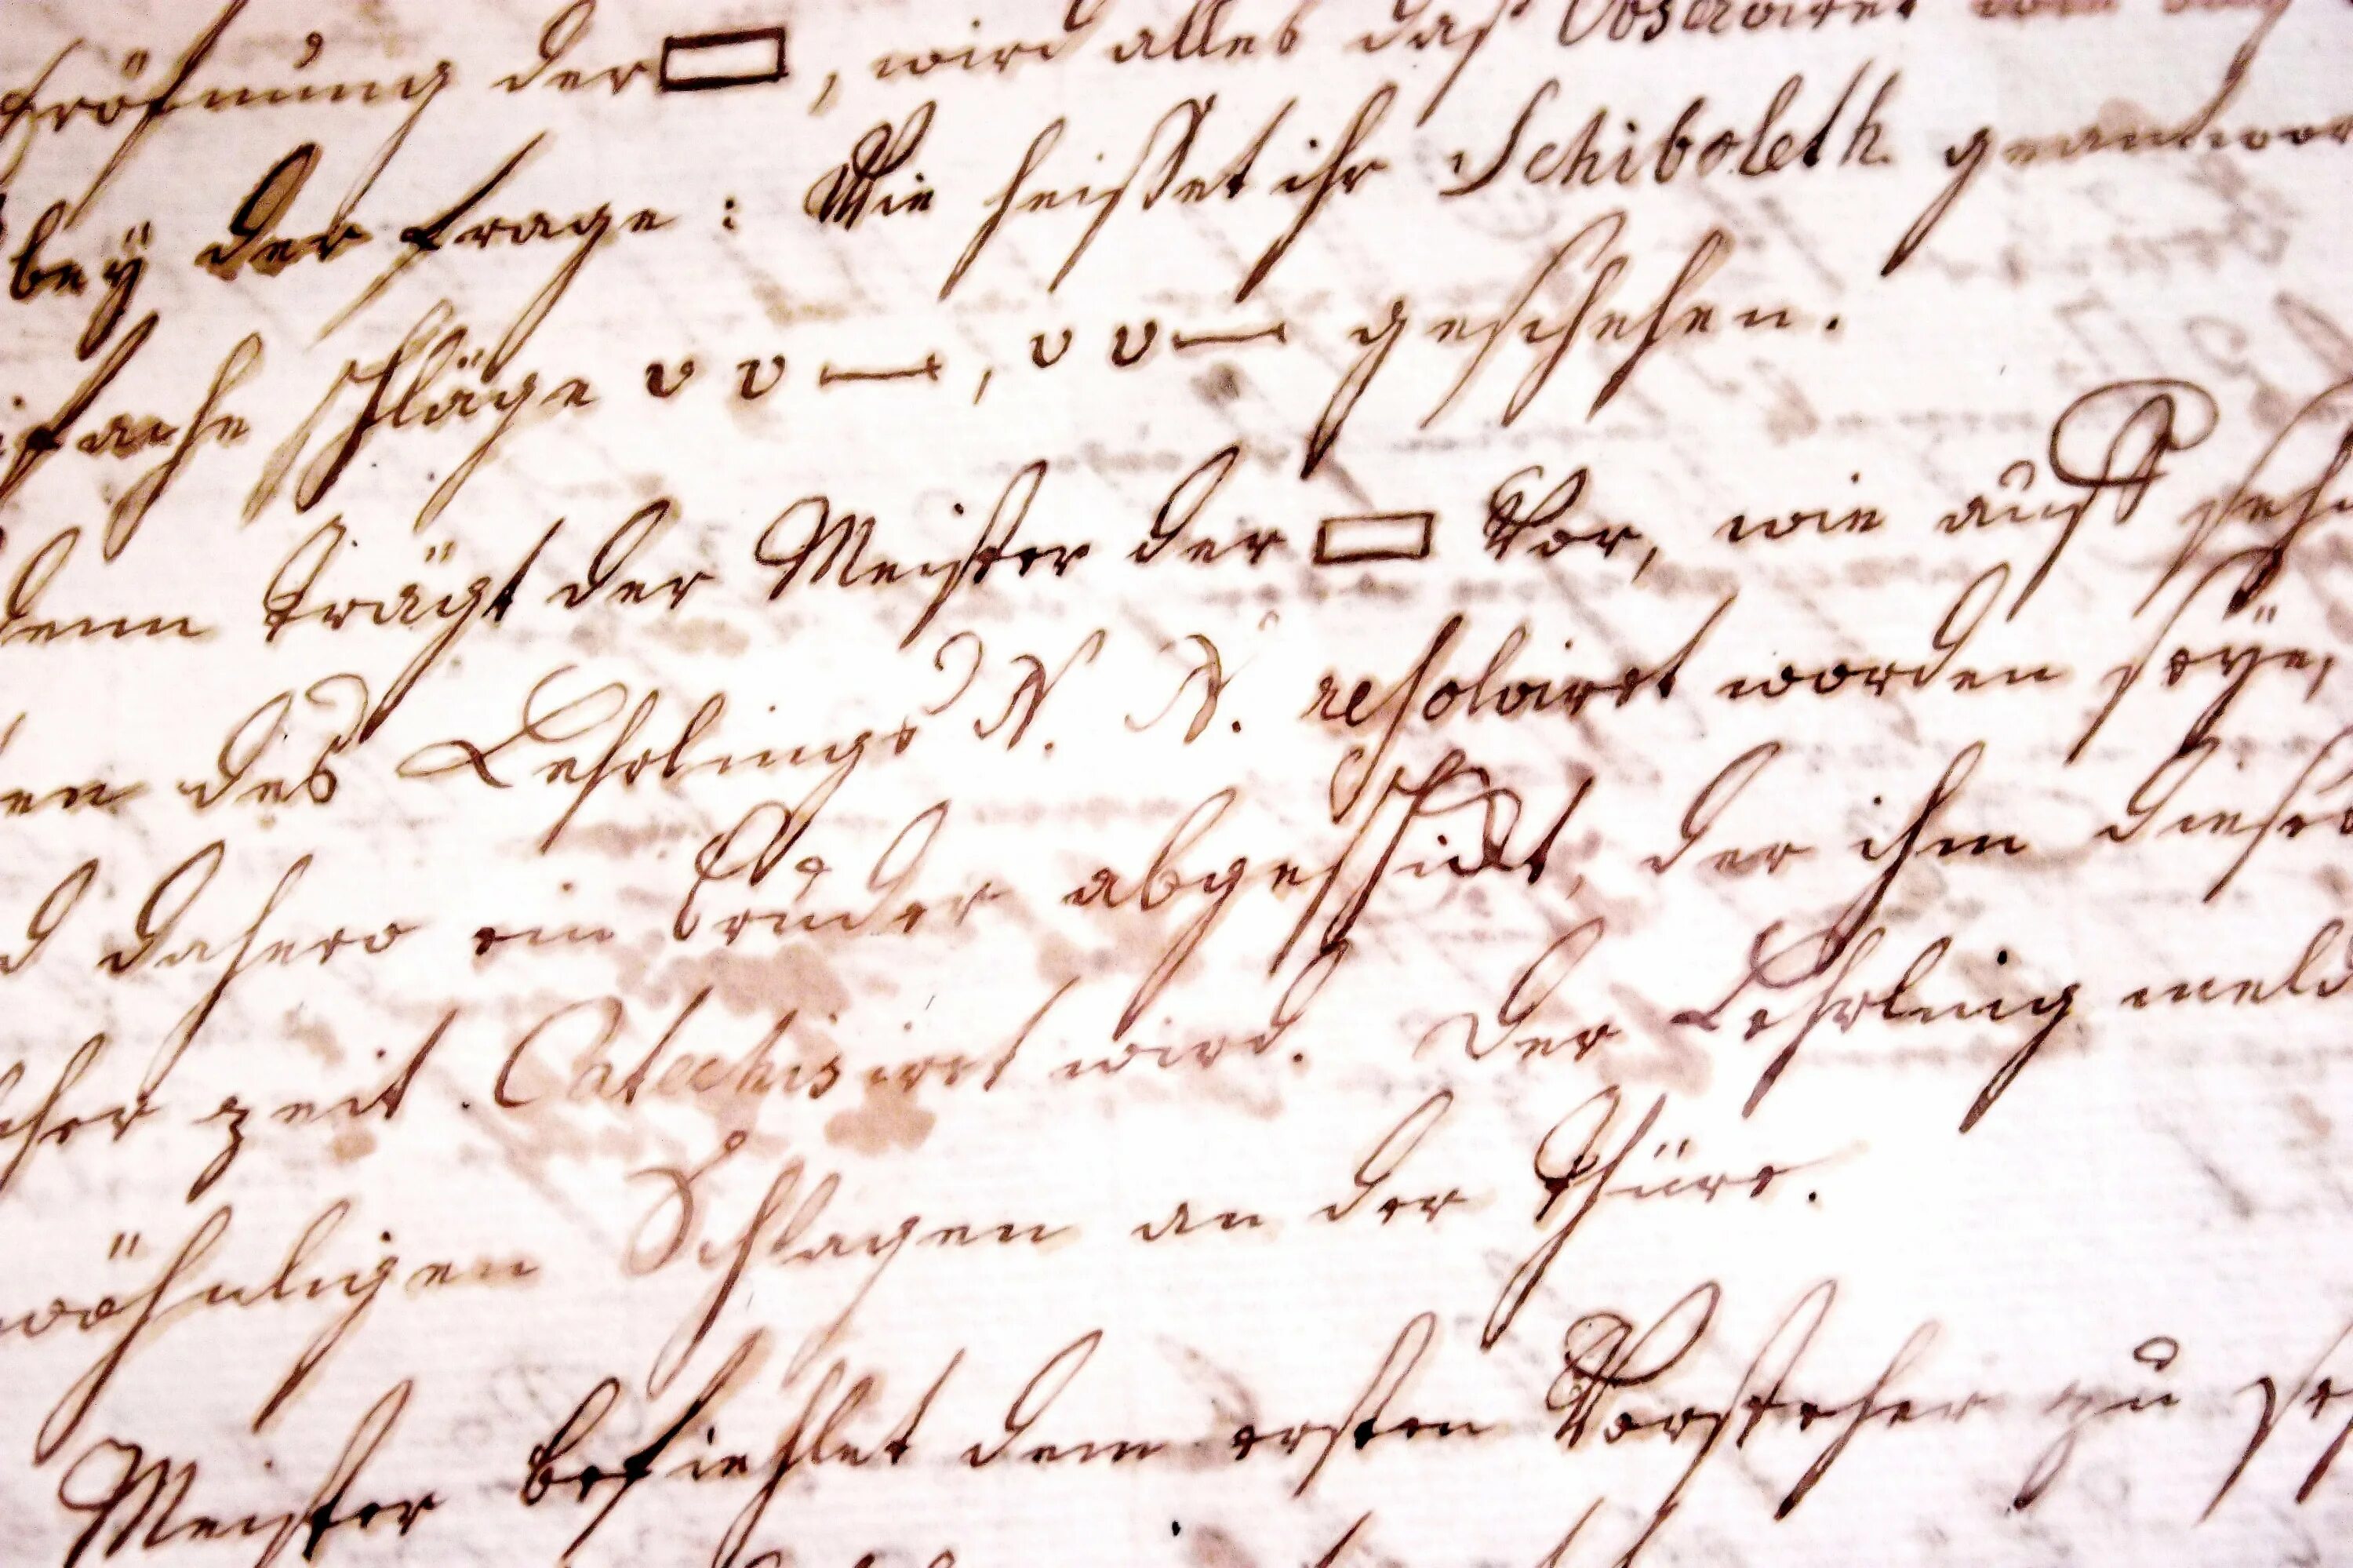 Eröfnung der ▭, wird alles das Observiret
bey der frage: Wie heisset ihr Schiboleth geantwor
fache schläge υ υ —, υ υ — geschehen.
denn trägt der Meister der ▭ Vor, wie auf
en des Lehrlings N. N. resolviret worden seÿe,
d dahero ein Bruder abgeschickt, der ihm dieses
cher zeit Catechisirt wird. Der Lehrling meld
wöhnligen Schlagen an der Thüre.
Meister befiehlet dem ersten Vorsteher zu se